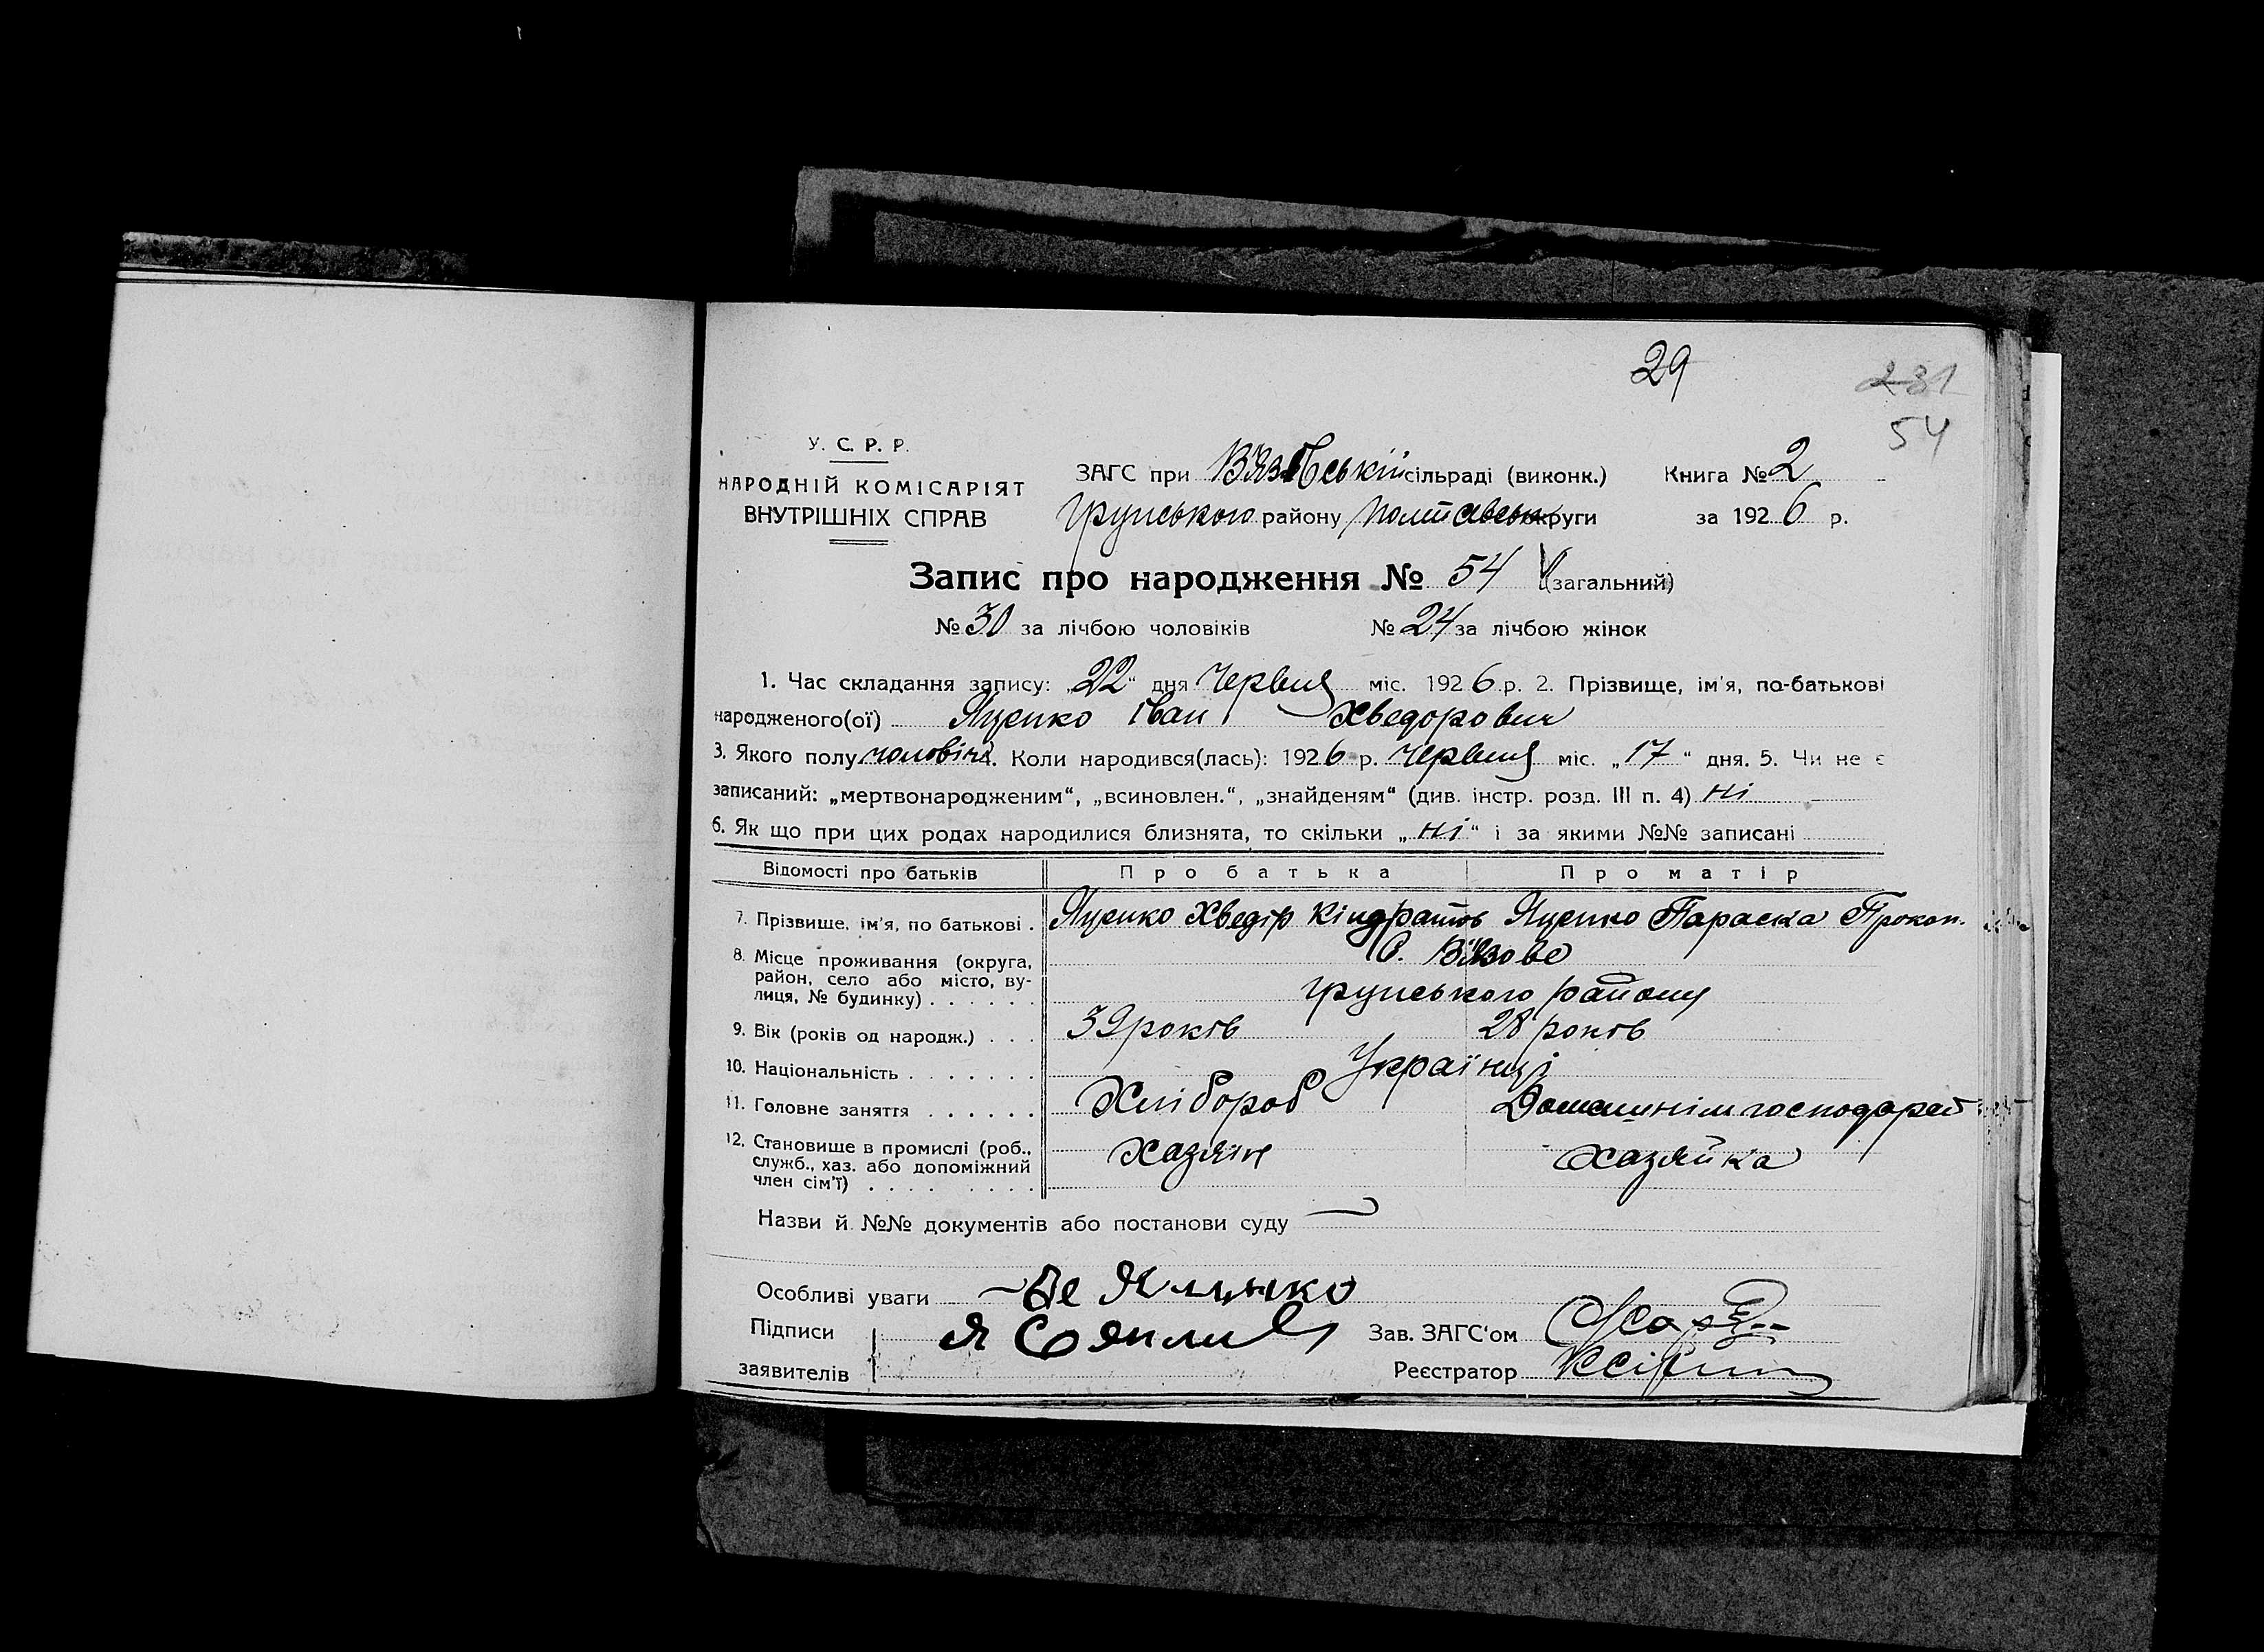 29
281
54
У. С. Р. Р.
НАРОДНІЙ КОМІСАРІЯТ
ВНУТРІШНІХ СПРАВ
ЗАГС при В'язівській сільраді (виконк.) Книга № 2
Грунського району Полтавськ округи за 1926 р.
Запис про народження № 54 (загальний)
№ 30 за лічбою чоловіків № 24 за лічбою жінок
1. Час складання запису: „22“ дня Червня міс. 1926 р. 2. Прізвище, ім'я, по-батькові
народженого(ої) Яценко Іван Хведорович
3. Якого полу чоловіч. 4. Коли народився(лась): 1926 р. Червня міс. „17“ дня. 5. Чи не є
записаний: „мертвонародженим“, „всиновлен.“, „знайденям“ (див. інстр. розд. III п. 4) ні
6. Як що при цих родах народилися близнята, то скільки „ні“ і за якими №№ записані
Відомості про батьків Про батька Про матір
7. Прізвище, ім'я, по батькові . Яценко Хведір Кіндратов Яценко Параска Прокоп.
8. Місце проживання (округа, район, село або місто, вулиця, № будинку) . . . . . . С. В'язове
Грунського району
9. Вік (років од народж.) . . . 39 років 28 років
10. Національність . . . . . . . Українці
11. Головне заняття . . . . . . Хлібороб Домашнім господарст
12. Становище в промислі (роб., служб., хаз. або допоміжний член сім'ї) . . . . . . . . Хазяїн Хазяйка
Назви й №№ документів або постанови суду
Особливі уваги
Підписи
Зав. ЗАГС'ом
заявителів
Реєстратор